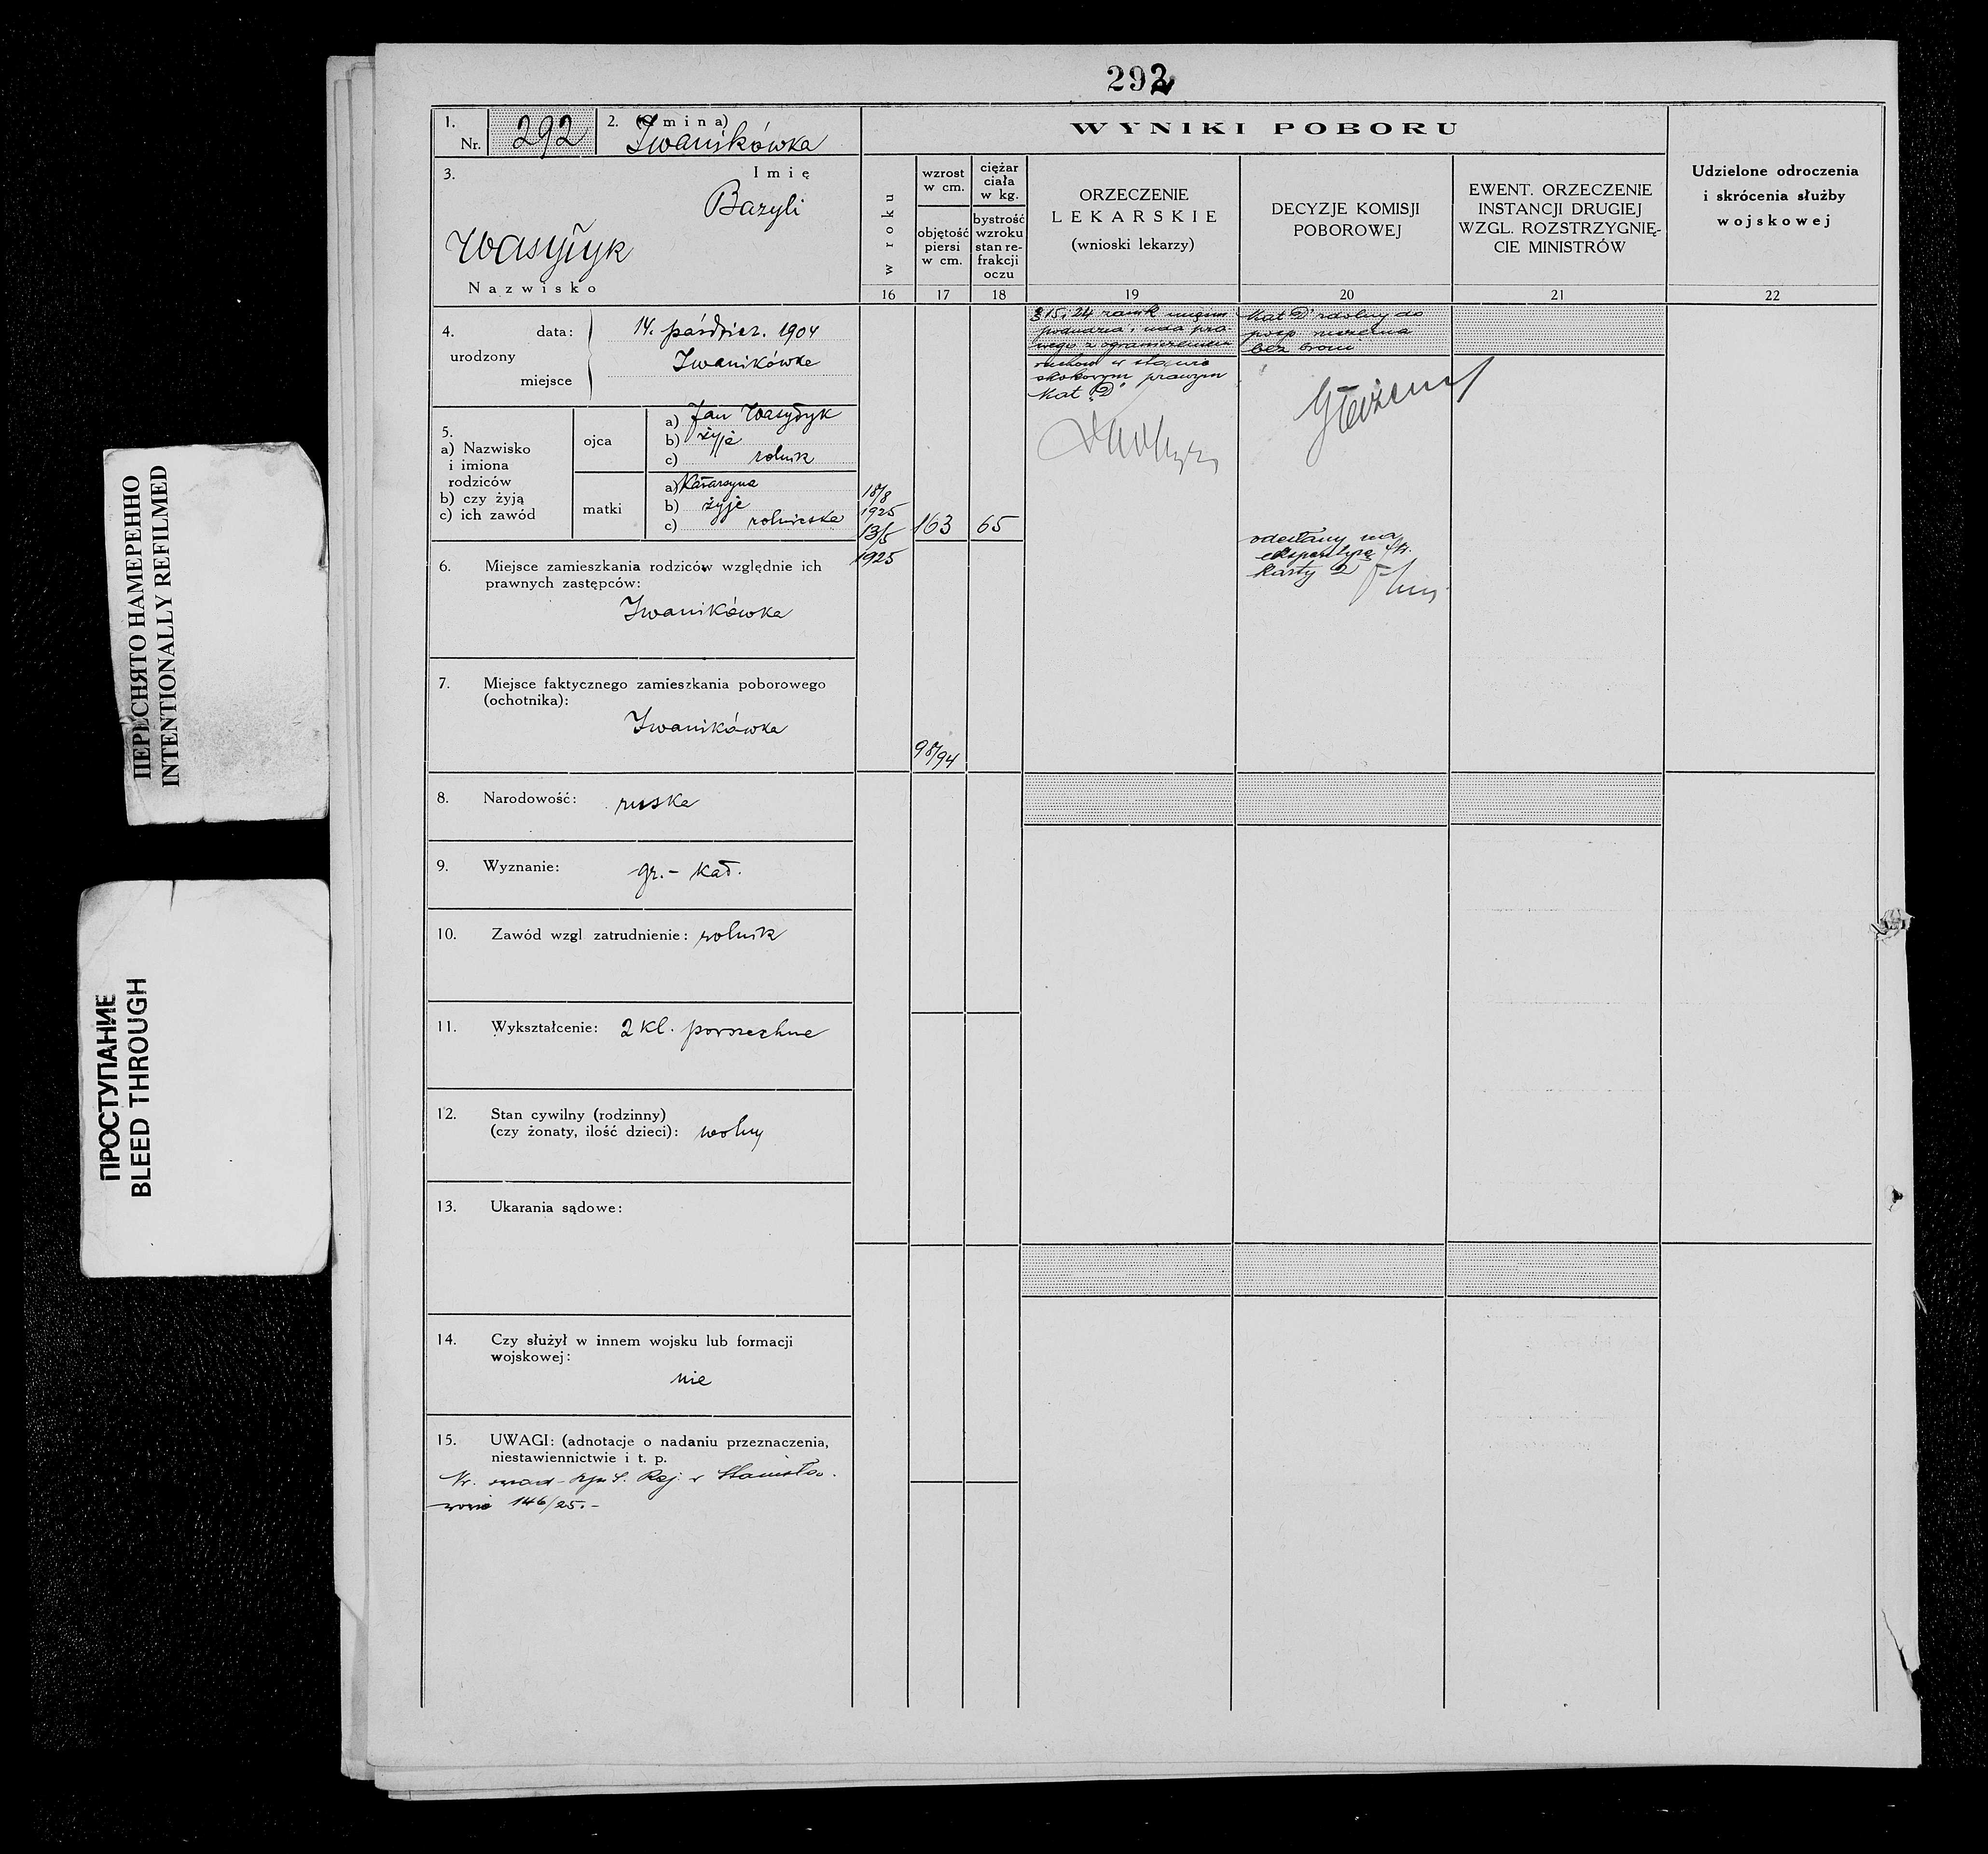 292
1.
Nr. 292
2. (Gmina)
Iwanikówka
3.
Imię
Bazyli
Wasyłyk
Nazwisko
4.
urodzony
data: 14. paździer. 1904
miejsce Iwanikówka
5.
a) Nazwisko
i imiona
rodziców
b) czy żyją
c) ich zawód
ojca
a) Jan Wasyłyk
b) żyje
c) rolnik
matki
a) Katarzyna
b) żyje
c) rolniczka
6. Miejsce zamieszkania rodziców względnie ich
prawnych zastępców:
Iwanikówka
7. Miejsce faktycznego zamieszkania poborowego
(ochotnika):
Iwanikówka
8. Narodowość: ruska
9. Wyznanie: gr.- kat.
10. Zawód wzgl zatrudnienie: rolnik
11. Wykształcenie: 2 kl. powszechne
12. Stan cywilny (rodzinny)
(czy żonaty, ilość dzieci): wolny
13. Ukarania sądowe:
14. Czy służył w innem wojsku lub formacji
wojskowej:
nie
15. UWAGI: (adnotacje o nadaniu przeznaczenia,
niestawiennictwie i t. p.
Rej. w Stanisła-
wowie 146/25.-
WYNIKI POBORU
w roku
16
wzrost
w cm.
objętość
piersi
w cm.
17
ciężar
ciała
w kg.
bystrość
wzroku
stan re-
frakcji
oczu
18
ORZECZENIE
LEKARSKIE
(wnioski lekarzy)
19
DECYZJE KOMISJI
POBOROWEJ
20
EWENT. ORZECZENIE
INSTANCJI DRUGIEJ
WZGL. ROZSTRZYGNIĘ-
CIE MINISTRÓW
21
Udzielone odroczenia
i skrócenia służby
wojskowej
22
18/8
1925
13/5
1925
163
65
98/94
§ 15, 24 zanik mięśni
podudzia i uda pra-
wego z ograniczeniem
ruchów w stawie
skokowym prawym
Kat „D"
Kat „D" zdolny do
posp. ruszenia
bez broni
odesłany na
ekspertyzę
karty 2
ПЕРЕСНЯТО НАМЕРЕННО
INTENTIONALLY REFILMED
ПРОСТУПАНИЕ
BLEED THROUGH